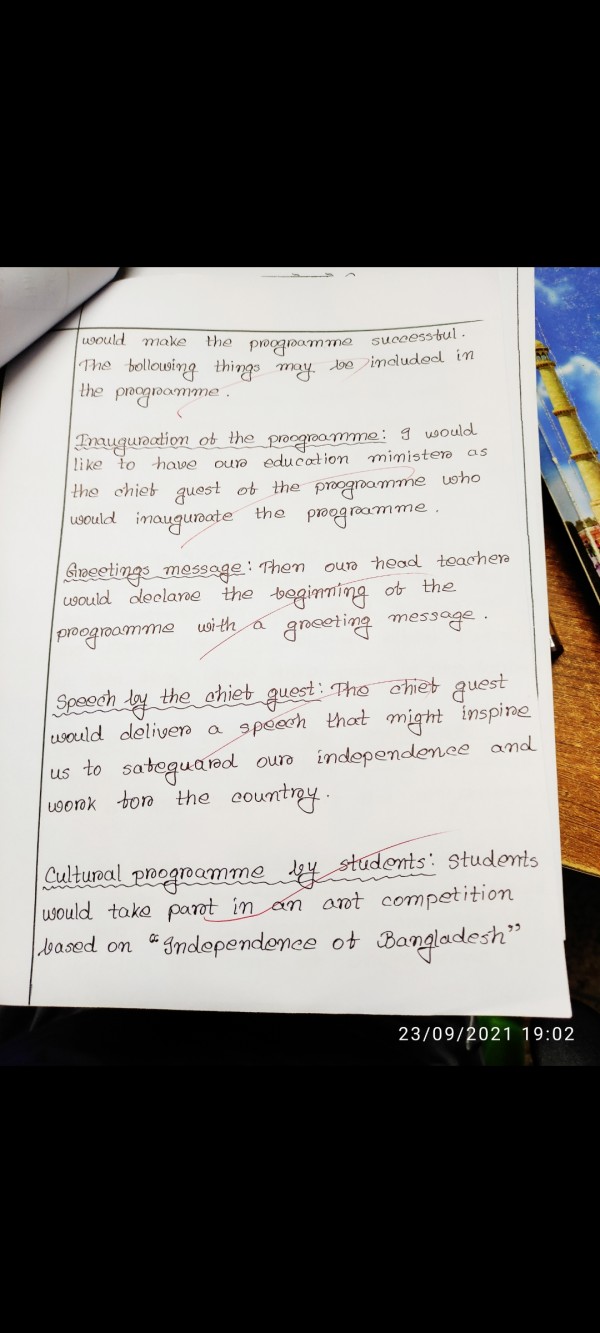 would make the programme successful.
The following things may be included in
the programme.
Inauguration of the programme: I would
like to have our education minister as
the chief guest of the programme who
would inaugurate the programme.
Greetings message: Then our head teacher
would declare the beginning of the
programme with a greeting message.
Speech by the chief guest: The chief guest
would deliver a speech that might inspire
us to safeguard our independence and
work for the country.
Cultural programme by students: Students
would take part in an art competition
based on "Independence of Bangladesh"
23/09/2021 19:02